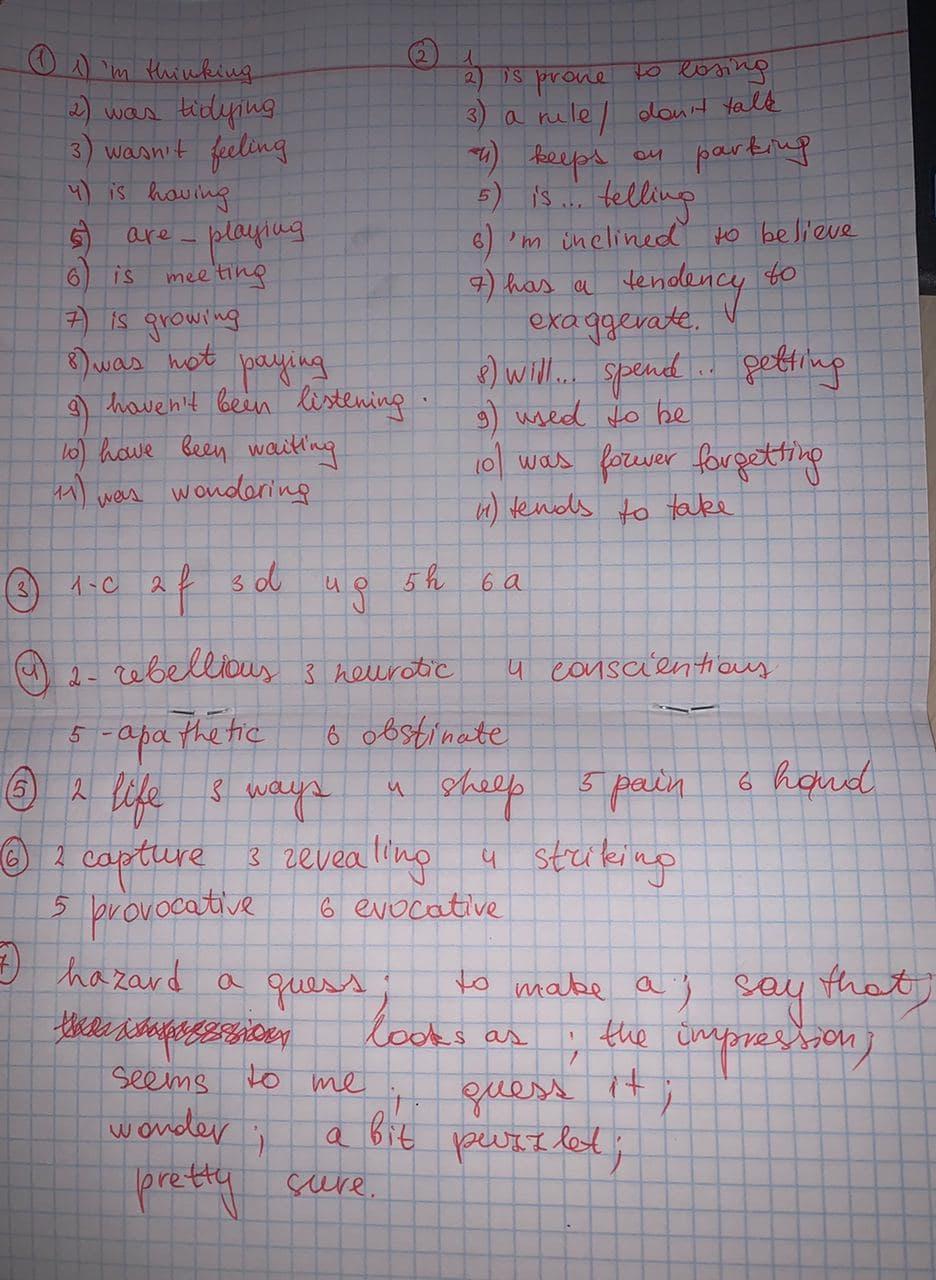 ① 1) 'm thinking
2) was tidying
3) wasn't feeling
4) is having
5) are - playing
6) is meeting
7) is growing
8) was not paying
9) haven't been listening.
10) have been waiting
11) was wondering
② 1
2) is prone to losing
3) a rule / don't talk
4) keeps on parking
5) is... telling
6) 'm inclined to believe
7) has a tendency to
exaggerate.
8) will... spend.. getting
9) used to be
10) was forever forgetting
11) tends to take
③ 1-c 2 f 3 d 4 g 5 h 6 a
④ 2- rebellious 3 neurotic 4 conscientious
5 - apathetic 6 obstinate
⑤ 2 life 3 ways 4 sheep 5 pain 6 hand
⑥ 2 capture 3 revealing 4 striking
5 provocative 6 evocative
7 hazard a guess; to make a; say that;
looks as; the impression;
seems to me; guess it;
wonder; a bit puzzlet;
pretty sure.